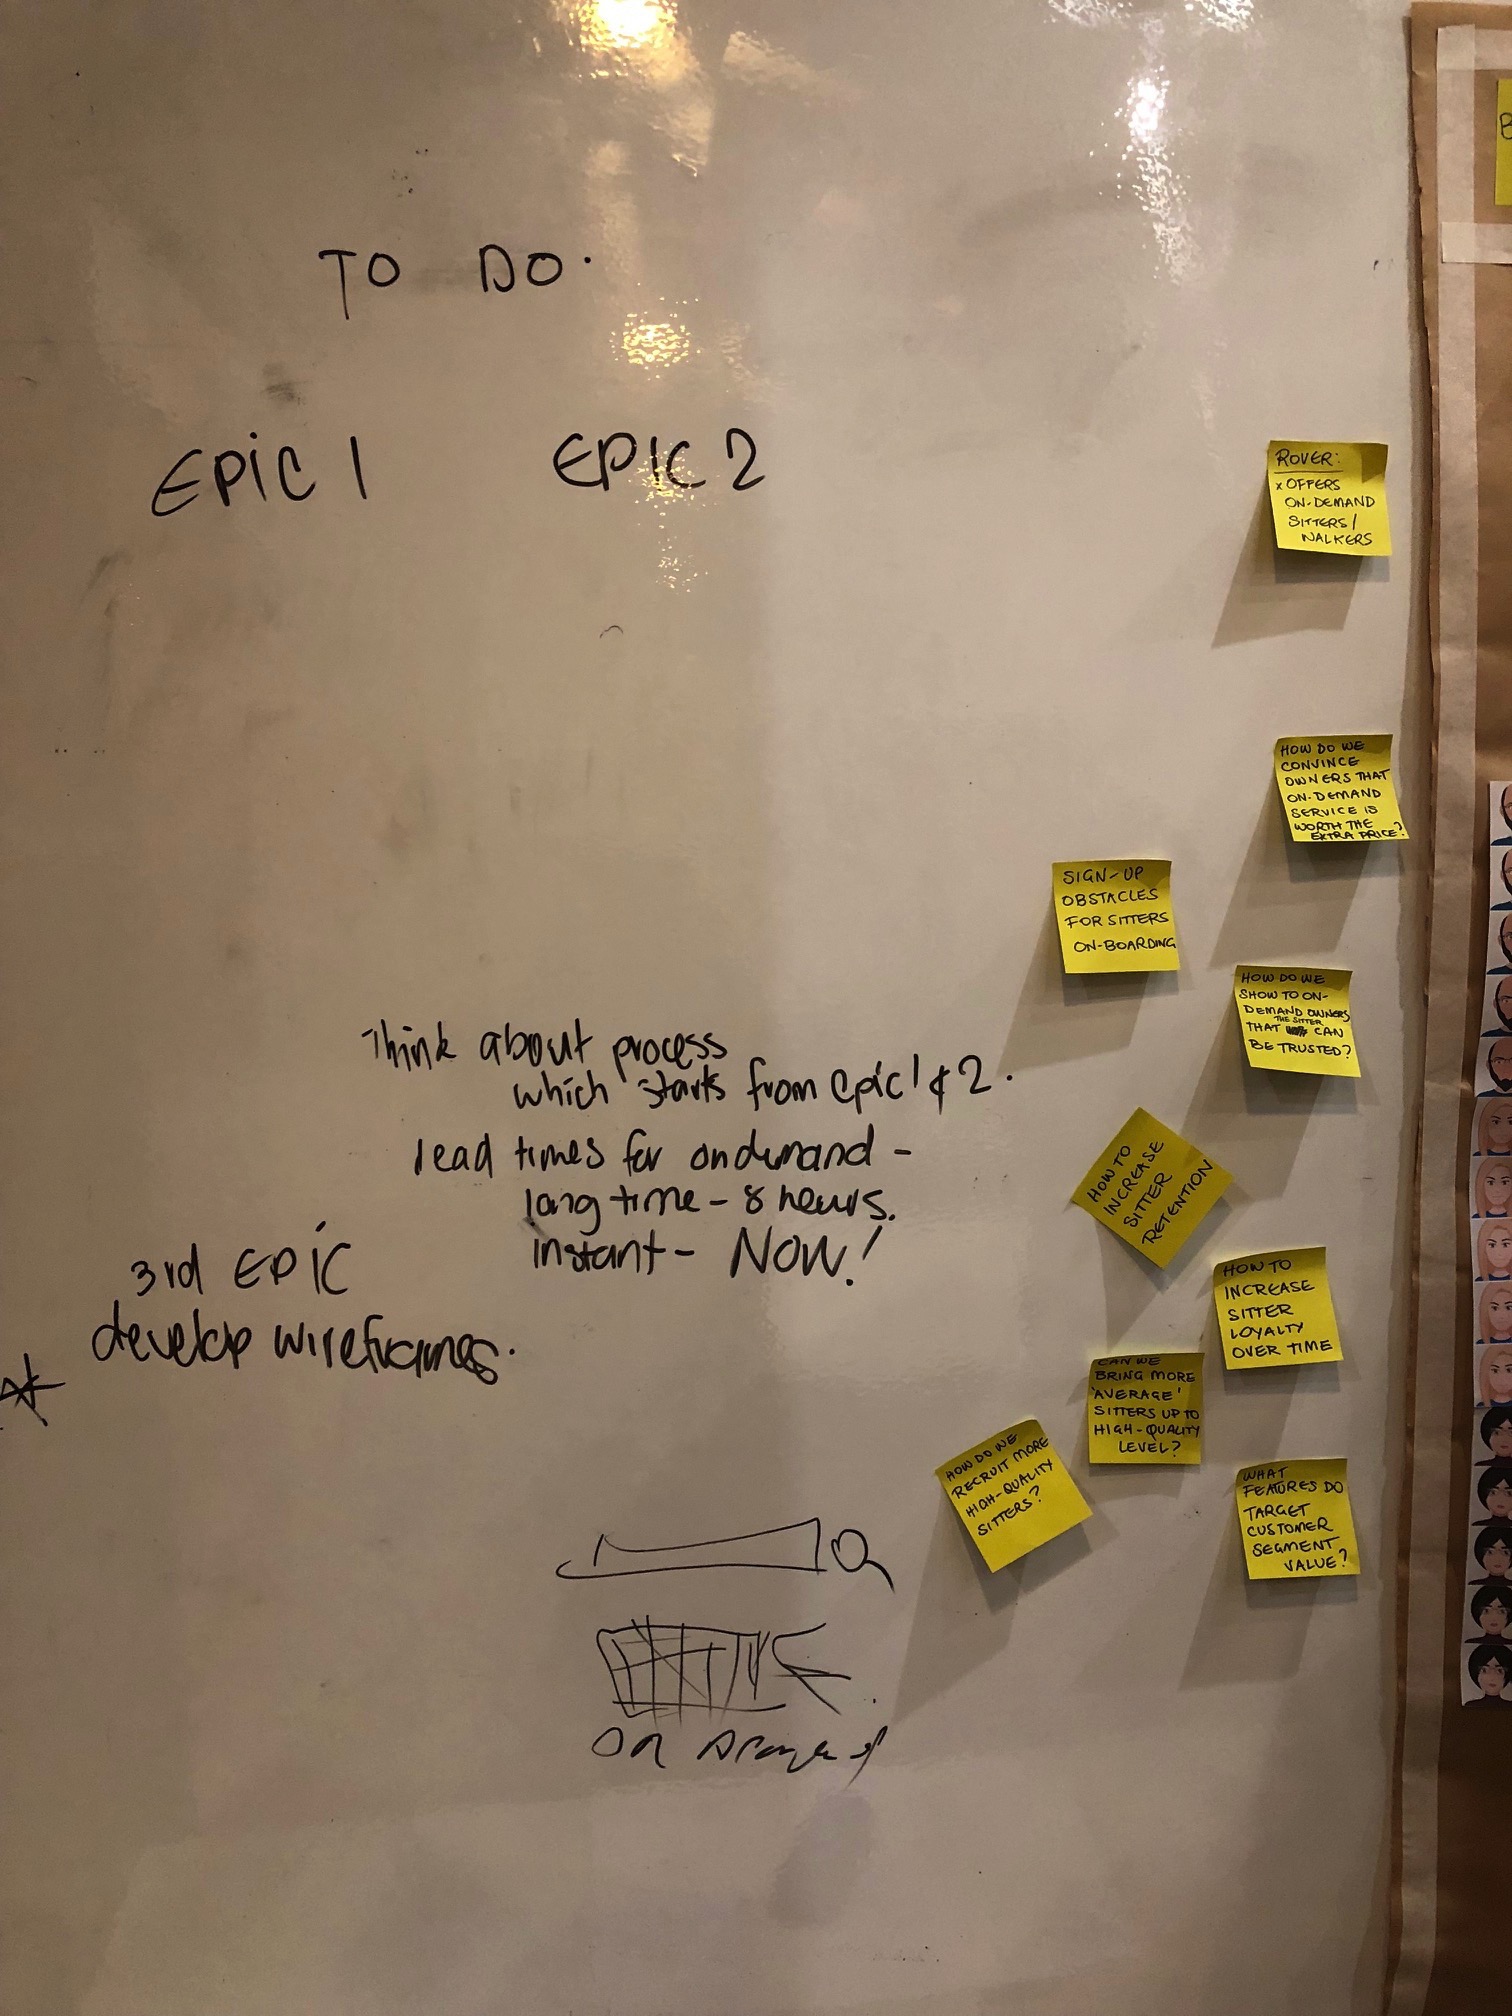 TO DO.
EPIC 1
EPIC 2
Think about process
which starts from epic 1 & 2.
lead times for ondemand -
long time - 8 hours.
instant - NOW!
3rd EPIC
develop wireframes.
On Demand
ROVER:
x OFFERS
ON-DEMAND
SITTERS/
WALKERS
HOW DO WE
CONVINCE
OWNERS THAT
ON-DEMAND
SERVICE IS
WORTH THE
EXTRA PRICE?
SIGN-UP
OBSTACLES
FOR SITTERS
ON-BOARDING
HOW DO WE
SHOW TO ON-
DEMAND OWNERS
THAT THE SITTER CAN
BE TRUSTED?
HOW TO
INCREASE
SITTER
RETENTION
HOW TO
INCREASE
SITTER
LOYALTY
OVER TIME
CAN WE
BRING MORE
'AVERAGE'
SITTERS UP TO
HIGH-QUALITY
LEVEL?
HOW DO WE
RECRUIT MORE
HIGH-QUALITY
SITTERS?
WHAT
FEATURES DO
TARGET
CUSTOMER
SEGMENT
VALUE?